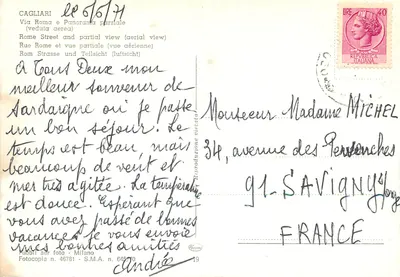 CAGLIARI
Via Roma e Panorama parziale
(veduta aerea)
Rome Street and partial view (aerial view)
Rue Rome et vue partielle (vue aérienne)
Rom Strasse und Teilsicht (luftsicht)
le 6/6/71
A Tous Deux mon
meilleur souvenir de
Sardaigne où je passe
un bon séjour. Le
temps est beau, mais
beaucoup de vent et
mer très agitée. La température
est douce. Espérant que
vous avez passé de bonnes
vacances je vous envoie
mes bonnes amitiés
André
Fotocopia n. 46781 - S.M.A. n.
19
40
Monsieur Madame MICHEL
34, avenue des Pervenches
91-SAVIGNY s/orge
FRANCE